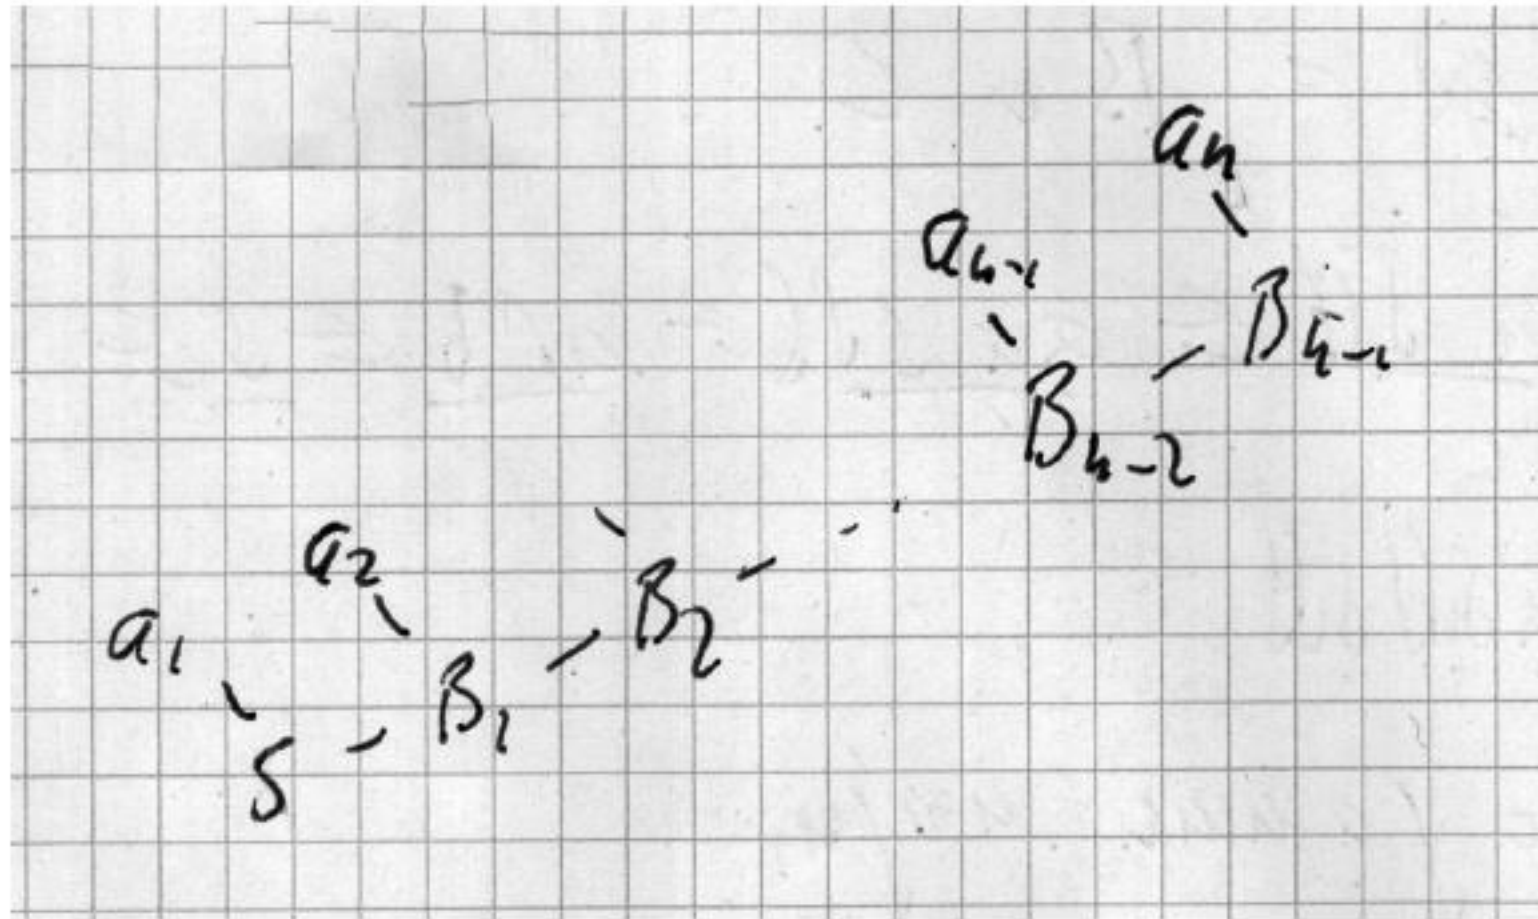 aₙ
aₙ₋₁
Bₙ₋₁
Bₙ₋₂
a₂
B₂
a₁
B₁
S